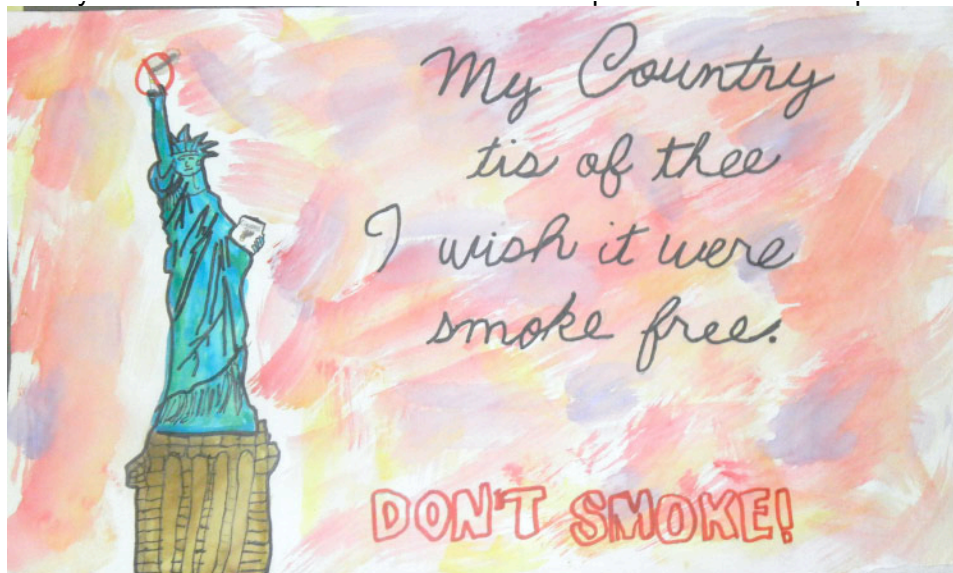 My Country
tis of thee
I wish it were
smoke free.
DON'T SMOKE!